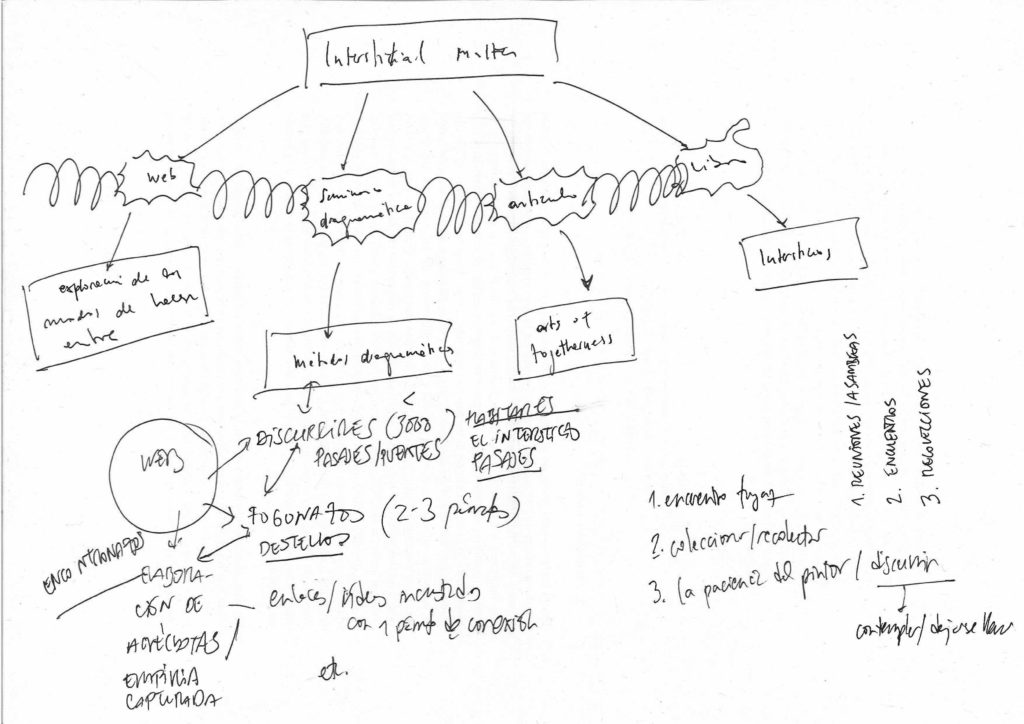 Interstitial matter
web
Seminario
diagramático
artículo
Libro
exploración de los
modos de hacer
entre
métodos diagramáticos
arts of
togetherness
Intersticios
WEB
DISCURRIRES (3000
PASAJES/PUENTES
<
)
HABITARES
EL INTERSTICIO
PASAJES
(2-3 párrafos)
DESTELLOS
ENCONTRONAZOS
ELABORA-
CIÓN DE
ANÉCDOTAS/
EMPIRIA
CAPTURADA
enlaces/vídeos incrustados
con 1 párrafo de conexión
etc.
1. encuentro fugaz
2. coleccionar/recolectar
3. la paciencia del pintor/discurrir
contemplar/dejarse llevar
1. REUNIONES/ASAMBLEAS
2. ENCUENTROS
3. RECOLECCIONES